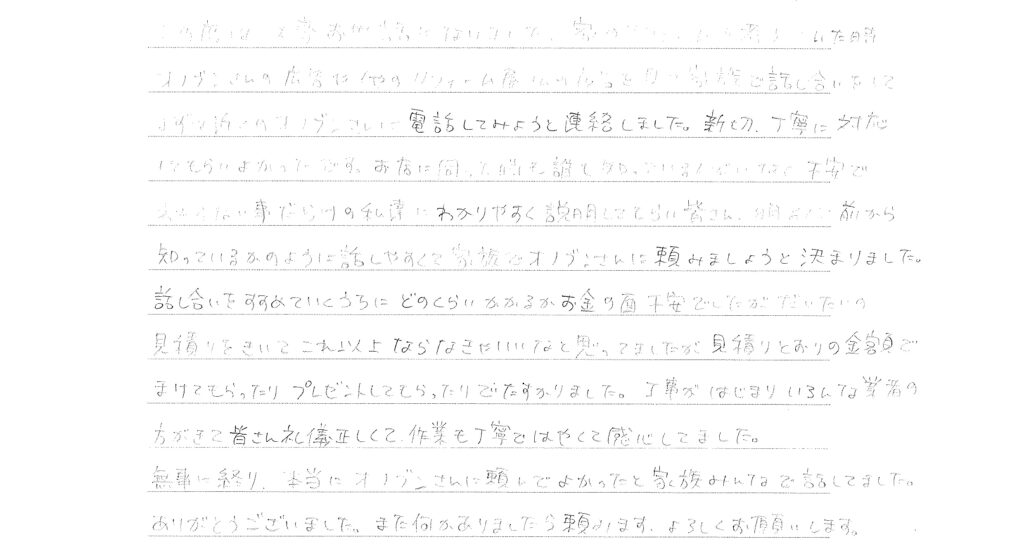 この度は大変お世話になりました。家のリフォームを考えていた時
オノヅンさんの広告や他のリフォーム屋さんの広告を見て家族で話し合いをして
まずオノヅンさんに電話してみようと連絡しました。親切、丁寧に対応
してもらいよかったです。お店に伺った時も誰も知っている人がいなく不安で
わからない事だらけの私達にわかりやすく説明してもらい皆さん、前から
知っているかのように話しやすくて家族でオノヅンさんに頼みましょうと決まりました。
話し合いをすすめていくうちにどのくらいかかるかお金の面不安でしたがだいたいの
見積りをきいてこれ以上ならなきゃいいなと思ってましたが見積りとおりの金額で
まけてもらったりプレゼントしてもらったりでたすかりました。工事がはじまりいろんな業者の
方がきて皆さん礼儀正しくて、作業も丁寧ではやくて感心してました。
無事に終り、本当にオノヅンさんに頼んでよかったと家族みんなで話してました。
ありがとうございました。また何かありましたら頼みます、よろしくお願いします。